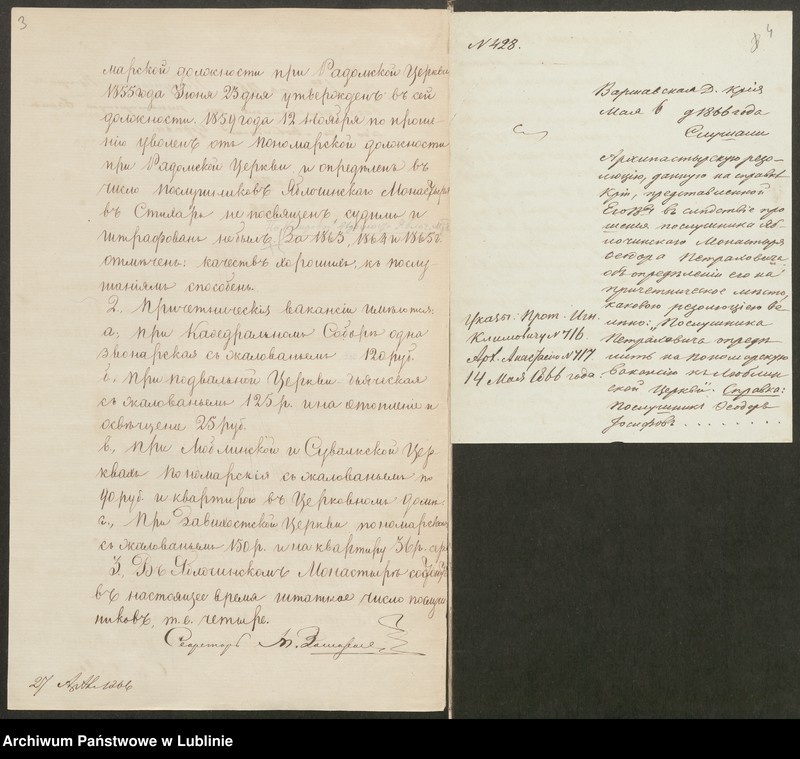 3
марской должности при Радомской Церкви
1855 года Iюня 23 дня утвержденъ въ сей
должности. 1859 года 12 Ноября по проше-
нію уволенъ отъ пономарской должности
при Радомской Церкви и опредѣленъ въ
число послушниковъ Яблочинскаго Монастыря
въ Стихарь не посвященъ, судимъ и
штрафованъ небылъ. За 1863, 1864 и 1865 г.
отмѣченъ: качествъ хорошихъ, къ послу-
шаніямъ способенъ.
2. Причетническія вакансіи имѣются:
а., при Кафедральномъ Соборѣ одна
звонарская съ жалованьемъ 120 руб.
б. при подвальной Церкви дьяческая
съ жалованьемъ 125 р. и на отопленіе и
освѣщеніе 25 руб.
в, при Люблинской и Сувалкской Цер
квахъ пономарскія съ жалованьемъ по
90 руб. и квартирой въ Церковномъ домѣ.
г., При Завихостской Церкви пономарская
съ жалованьемъ 150 р. и на квартиру 36 р. сер
3. Въ Яблочинскомъ Монастырѣ
въ настоящее время штатное число послуш
никовъ, т. е. четыре.
Секретарь
27 Апр. 1866
4
N 428.
Варшавская Д. Крія
Мая 6 д. 1866 года
Слушали
Архипастырскую резо-
люцію, данную на справкѣ
Кріи, представленной
въ слѣдствіе про
шенія послушника Яб-
лочинскаго Монастыря
Ѳеодора Петраловича
объ опредѣленіи его на
причетническое мѣсто,
каковою резолюціею ве
лѣно: „Послушника
Петраловича опредѣ
лить на пономарскую
вакансію къ Люблин
ской Церкви“. Справка:
Послушникъ Ѳеодоръ
Іосифовъ . . . . . . . .
Указы: Прот. Игн.
Климовичу N 716
Арх. Анастасію N 717.
14 Мая 1866 года.
Archiwum Państwowe w Lublinie